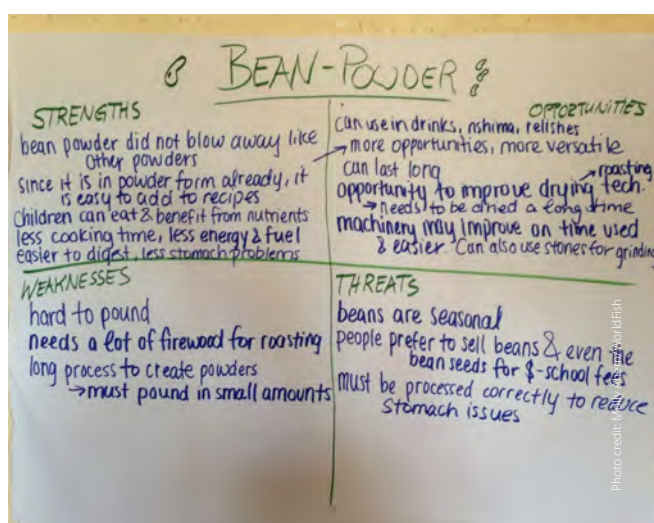 BEAN-POWDER
STRENGTHS
bean powder did not blow away like
other powders
since it is in powder form already, it
is easy to add to recipes
Children can eat & benefit from nutrients
less cooking time, less energy & fuel
easier to digest, less stomach problems
OPPORTUNITIES
can use in drinks, nshima, relishes
→ more opportunities, more versatile
can last long
→ roasting
opportunity to improve drying tech.
→ needs to be dried a long time
machinery may improve on time used
& easier. Can also use stones for grinding
WEAKNESSES
hard to pound
needs a lot of firewood for roasting
long process to create powders
→ must pound in small amounts
THREATS
beans are seasonal
people prefer to sell beans & even the
bean seeds for $-school fees
must be processed correctly to reduce
stomach issues
Photo credit: /WorldFish